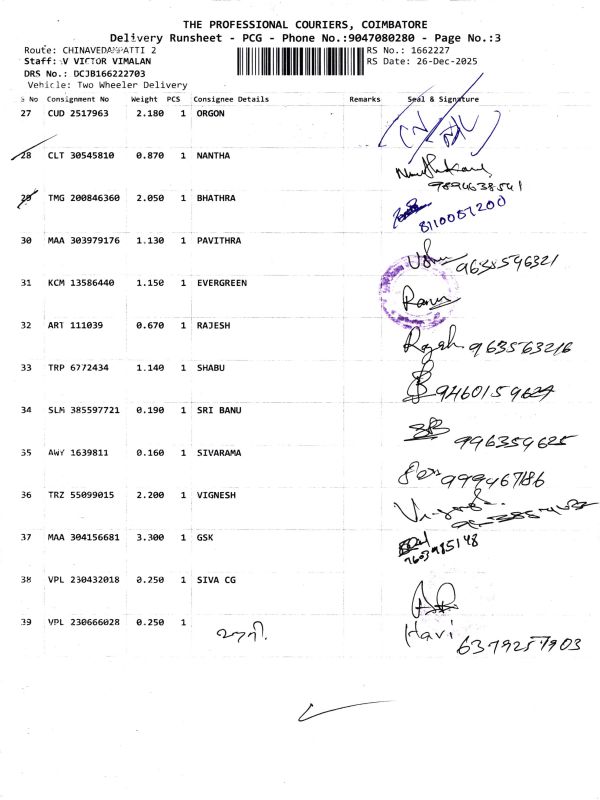 THE PROFESSIONAL COURIERS, COIMBATORE
Delivery Runsheet - PCG - Phone No.:9047080280 - Page No.:3
Route: CHINAVEDAMPATTI 2 RS No.: 1662227
Staff: V VICTOR VIMALAN RS Date: 26-Dec-2025
DRS No.: DCJB166222703
Vehicle: Two Wheeler Delivery
S No Consignment No Weight PCS Consignee Details Remarks Seal & Signature
27 CUD 2517963 2.180 1 ORGON
28 CLT 30545810 0.870 1 NANTHA
9894638541
29 TMG 200846360 2.050 1 BHATHRA
8110087200
30 MAA 303979176 1.130 1 PAVITHRA
9638596321
31 KCM 13586440 1.150 1 EVERGREEN
32 ART 111039 0.670 1 RAJESH
Rajesh 963563216
33 TRP 6772434 1.140 1 SHABU
9460159627
34 SLM 385597721 0.190 1 SRI BANU
996359625
35 AWY 1639811 0.160 1 SIVARAMA
999467186
36 TRZ 55099015 2.200 1 VIGNESH
37 MAA 304156681 3.300 1 GSK
7603985148
38 VPL 230432018 0.250 1 SIVA CG
39 VPL 230666028 0.250 1 Havi
6379257903